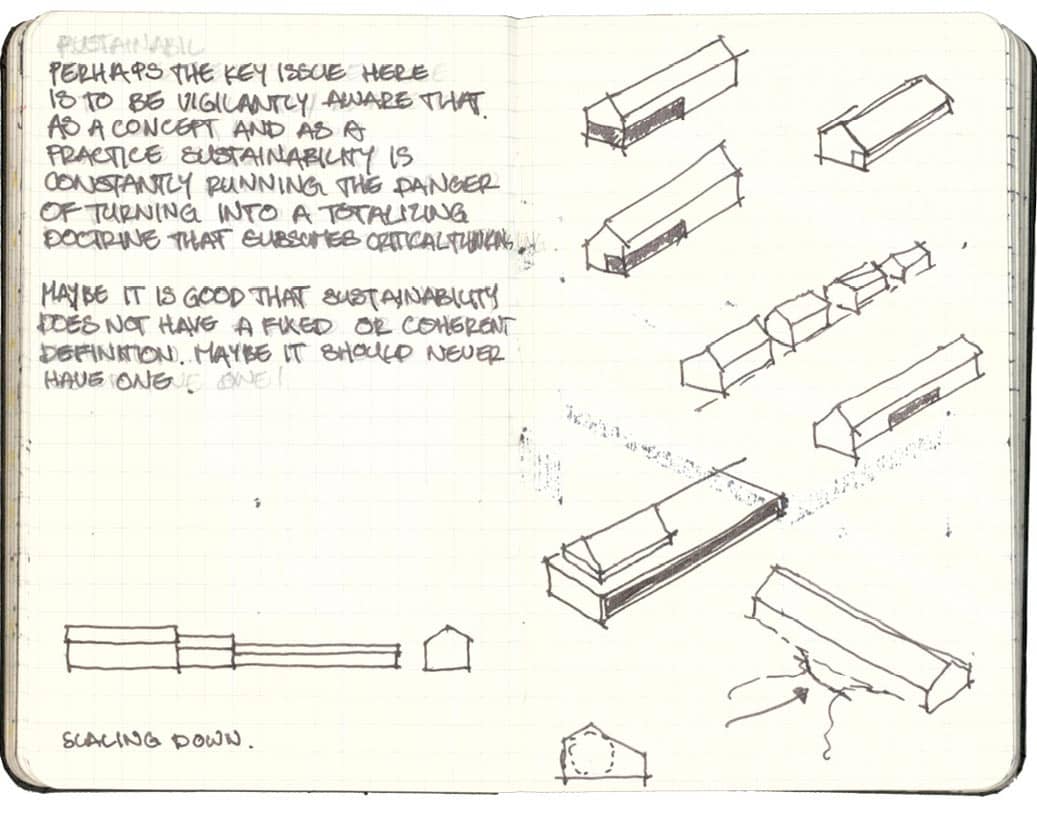 SUSTAINABIL
PERHAPS THE KEY ISSUE HERE
IS TO BE VIGILANTLY AWARE THAT
AS A CONCEPT AND AS A
PRACTICE SUSTAINABILITY IS
CONSTANTLY RUNNING THE DANGER
OF TURNING INTO A TOTALIZING
DOCTRINE THAT SUBSUMES CRITICAL THINKING.
MAYBE IT IS GOOD THAT SUSTAINABILITY
DOES NOT HAVE A FIXED OR COHERENT
DEFINITION. MAYBE IT SHOULD NEVER
HAVE ONE.
SCALING DOWN.